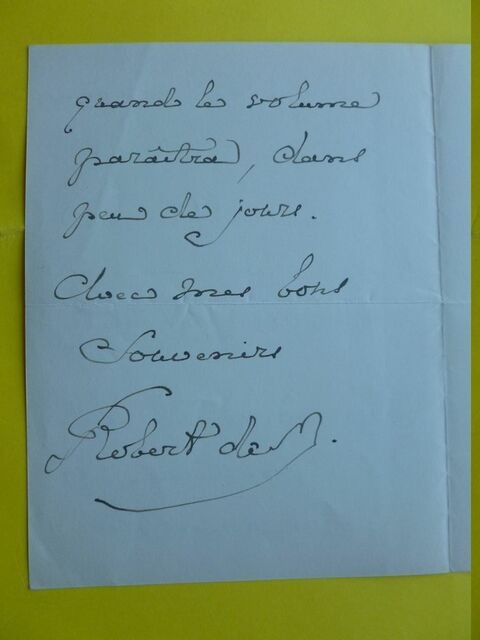 quand le volume
paraîtra, dans
peu de jours.
Avec mes bons
Souvenirs
Robert de M.